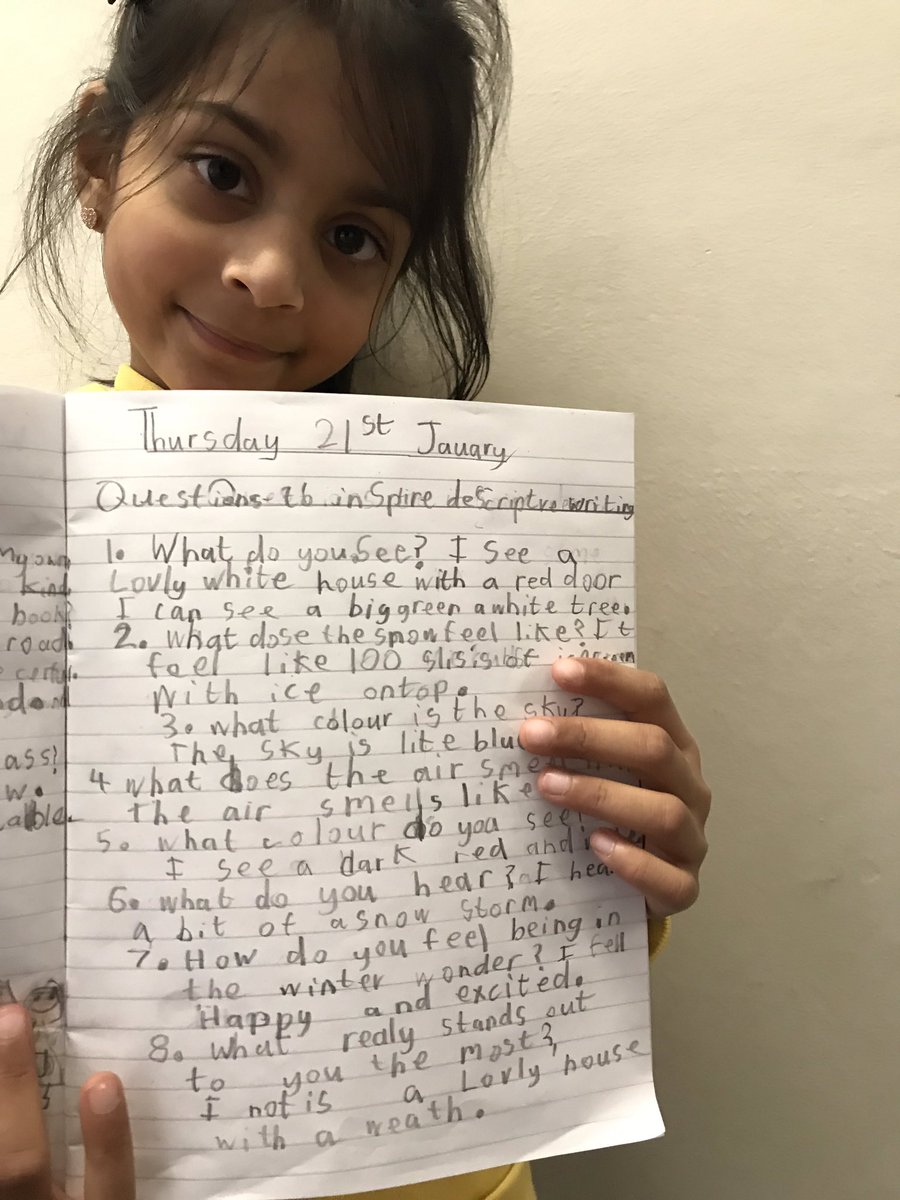 Thursday 21st Jauary
Questions to inSpire descriptve writing
My own
kind
book?
road
ass?
w.
able.
1. What do you See? I See a
Lovly white house with a red door
I can see a big green a white tree.
2. what dose the snow feel like? It
feel like 100
with ice ontop.
3. what colour is the sky?
The sky is lite blue
4 what does the air smell
the air smells like
5. what colour do you see?
I see a dark red and
6. what do you hear? I hear
a bit of a snow storm.
7. How do you feel being in
the winter wonder? I fell
Happy and excited.
8. what realy stands out
to you the most?
I not is a Lovly house
with a weath.